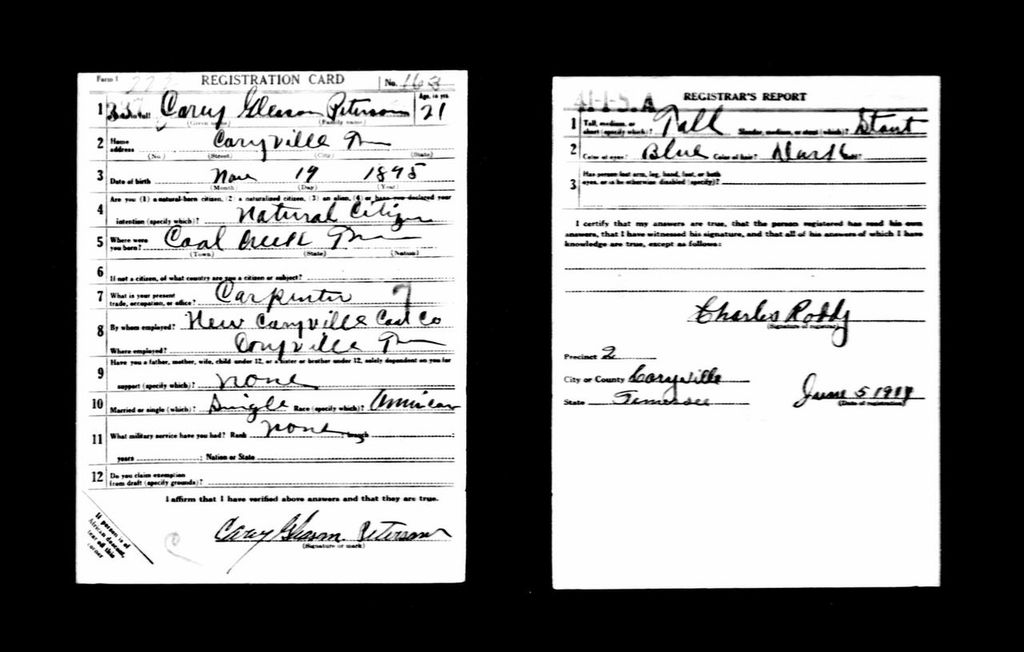 Form 1 REGISTRATION CARD No. 163
1 Carey Gleason Peterson Age, in yrs. 21
(Given name) (Family name)
2 Home address Caryville Tn
(No.) (Street) (City) (State)
3 Date of birth Nov 19 1895
(Month) (Day) (Year)
Are you (1) a natural-born citizen, (2) a naturalized citizen, (3) an alien, (4) or have you declared your
4 intention (specify which)? Natural Citizen
5 Where were you born? Coal Creek Tn
(Town) (State) (Nation)
6 If not a citizen, of what country are you a citizen or subject?
7 What is your present trade, occupation, or office? Carpenter 7
8 By whom employed? New Caryville Coal Co
Where employed? Caryville Tn
9 Have you a father, mother, wife, child under 12, or a sister or brother under 12, solely dependent on you for
support (specify which)? none
10 Married or single (which)? Single Race (specify which)? American
11 What military service have you had? Rank none ; branch ;
years ; Nation or State
12 Do you claim exemption from draft (specify grounds)?
I affirm that I have verified above answers and that they are true.
Carey Gleason Peterson
(Signature or mark)
If person is of
African descent,
tear off this
corner
REGISTRAR'S REPORT
1 Tall, medium, or short (specify which)? Tall Slender, medium, or stout (which)? Stout
2 Color of eyes? Blue Color of hair? Dark Bald?
3 Has person lost arm, leg, hand, foot, or both
eyes, or is he otherwise disabled (specify)?
I certify that my answers are true, that the person registered has read his own
answers, that I have witnessed his signature, and that all of his answers of which I have
knowledge are true, except as follows:
Charles Roddy
(Signature of registrar)
Precinct 2
City or County Caryville
State Tennessee June 5 1917
(Date of registration)